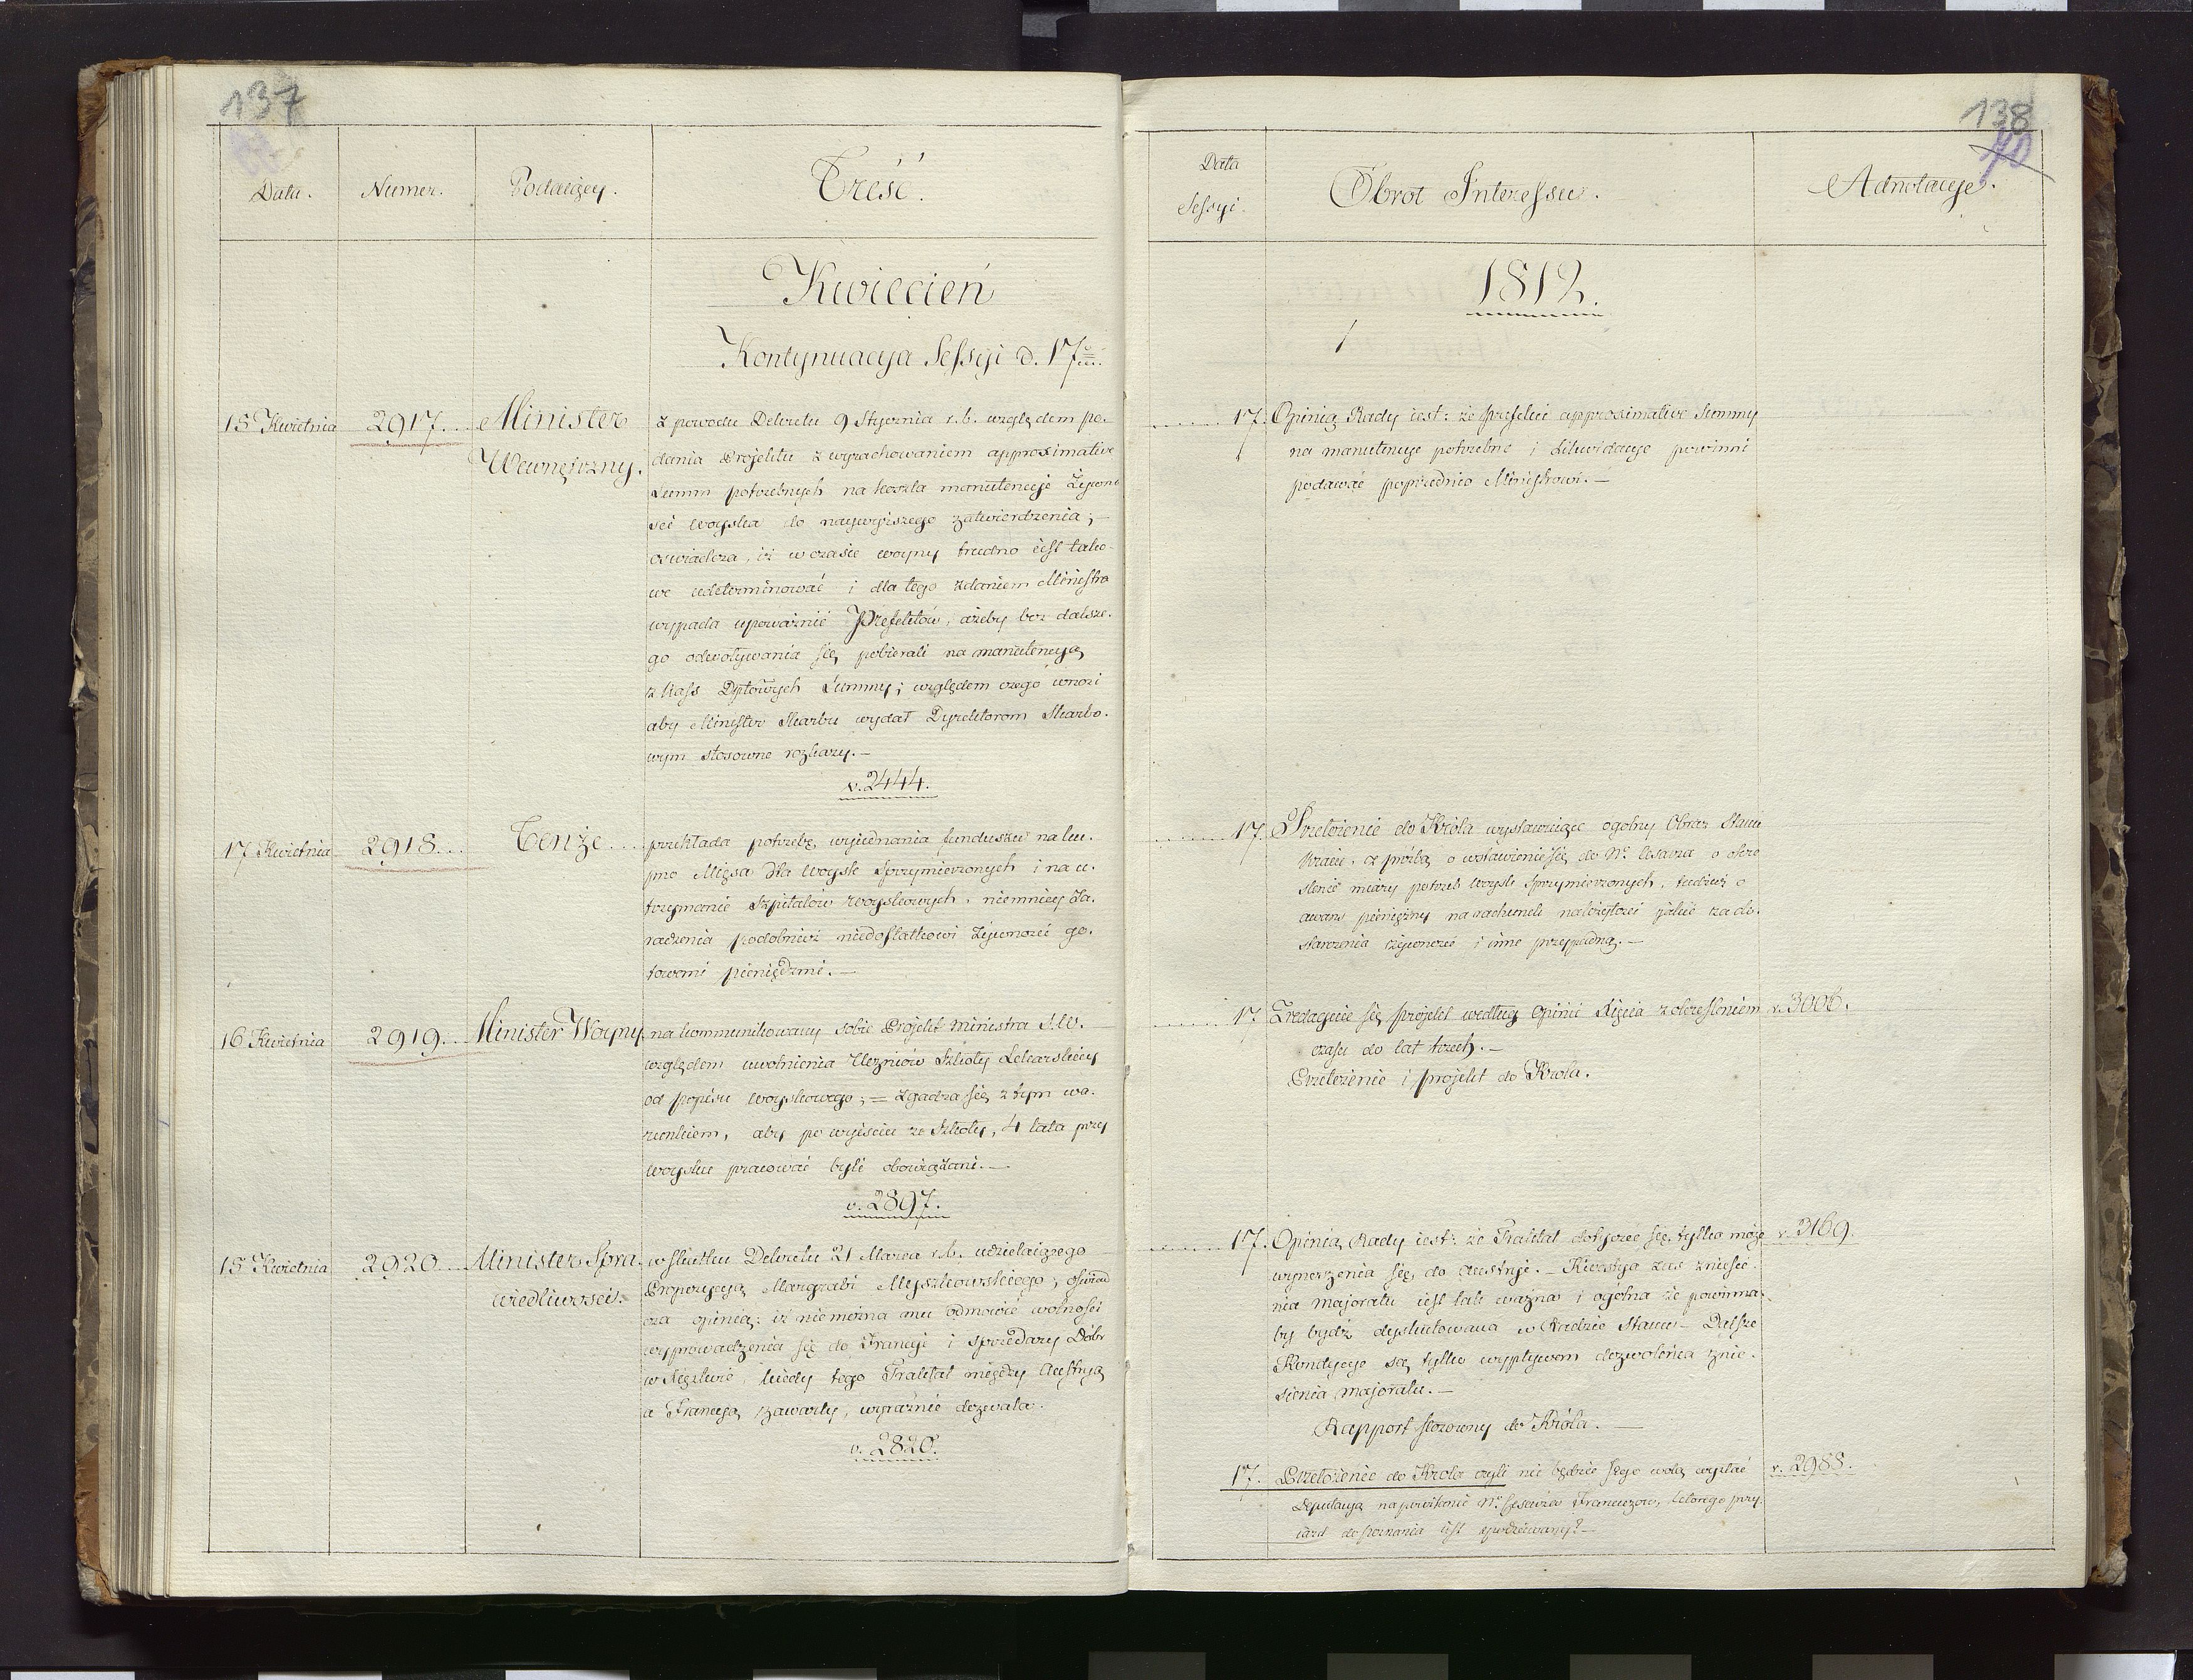 137
Data.
Numer.
Podaiący.
Treść.
Kwiecień
Kontynuacya Sessyi d. 17
15 Kwietnia
2917...
Minister
Wewnętrzny.
z powodu Dekretu 9 Stycznia r. b. względem po-
dania Projektu z wyrachowaniem approximative
Summ potrzebnych na koszta manutencyi Żywno
ści woyska do naywyższego zatwierdzenia;—
oświadcza, iż w czasie woyny trudno iest tako-
we udeterminować i dla tego zdaniem Ministra
wypada upoważnić Prefektów, ażeby bez dalsze-
go odwoływania się pobierali na manutencyą
z kass Dptowych Summy; względem czego wnosi
aby Minister Skarbu wydał Dyrektorom Skarbo-
wym stosowne rozkazy.—
v. 2444.
17 Kwietnia
2918...
Tenże....
przekłada potrzebę wyiednania funduszu na ku-
pno Mięsa dla woysk Sprzymierzonych i na u-
trzymanie Szpitalów woyskowych, niemniey Za-
radzenia podobnież niedostatkowi żywności go-
towemi pieniędzmi.—
16 Kwietnia
2919...
Minister Woyny
na kommunikowany sobie Projekt Ministra S. W.—
względem uwolnienia Uczniów Szkoły Lekarskiey
od popisu woyskowego;= zgadza się z tym wa-
runkiem, aby po wyiściu ze Szkoły, 4 lata przy
woysku pracować byli obowiązani.—
v. 2897.
15 Kwietnia
2920...
Minister Spra
wiedliwości.
w skutku Dekretu 21 Marca r. b. udzielaiącego
Propozycyą Margrabi Myszkowskiego, oświad
cza opinią: iż nie można mu odmówić wolności
wyprowadzenia się do Francyi i sprzedaży Dóbr
w Xięztwie, kiedy tego Traktat między Austryą
a Francyą zawarty, wyraźnie dozwala.
v. 2820.
138
Data
Sessyi.
Obrot Interessu.
Adnotacye.
1812.
17. Opinią Rady iest: że Prefekci approximative Summy
na manutencyę potrzebne i Likwidacye powinni
podawać poprzednio Ministrowi.—
17. Przełożenie do Króla wystawuiące ogólny Obraz Stanu
Kraiu, z prośbą o wstawienie się do N. Cesarza o okre
ślenie miary potrzeb woysk sprzymierzonych, tudzież o
awans pieniężny na rachunek należytości iakie za do-
starczenia żywności i inne przypadną.—
17. Zredaguie się projekt według Opinii Xięcia z określeniem
czasu do lat trzech.—
Przełożenie i projekt do Króla.
v. 3006.
17. Opinią Rady iest: że Traktat dotyczeć się tylko może
wyniesienia się do Austryi.— Kwestya zaś zniesie-
nia Majoratu iest tak ważna i ogólna że powinna-
by bydź dyskutowana w Radzie Stanu— Dalsze
Kondycye są tylko wypływem dozwolenia znie-
sienia Majoratu.—
Rapport stosowny do Króla.—
v. 3169.
17. Przełożenie do Króla czyli nie będzie Jego wolą wysłać
Deputacyą na powitanie N. Cesarza Francuzów, którego przy-
iazd do Poznania iest spodziewany?—
v. 2988.